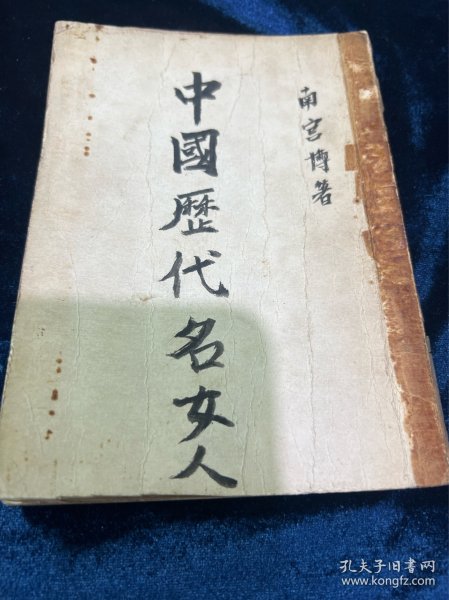 南宮博著
中國歷代名女人
孔夫子旧书网
www.kongfz.com